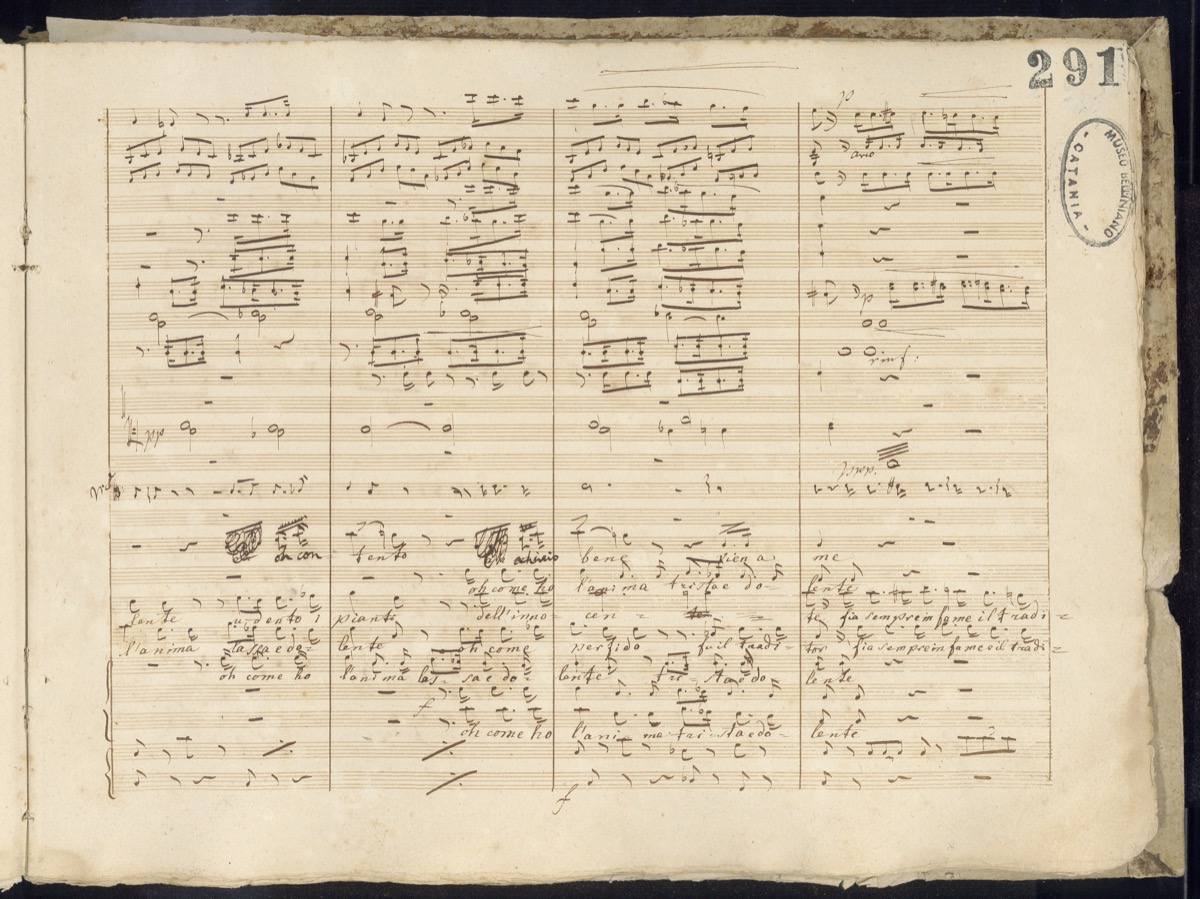 291
MUSEO BELLINIANO
- CATANIA -
p
p
rinf:
pp
oh con tento bene vien a me
oh come ho l'anima trista e do= lente
lante udento i pianti dell'inno= cen= te sia sempre infame il tradi=
l'anima lassa e do= lente oh come perfido fu il tradi= tor sia sempre infame e il tradi=
oh come ho l'anima las= sa e do= lente tri= sta e do lente
f
oh come ho l'ani= ma tri= sta e do= lente
f